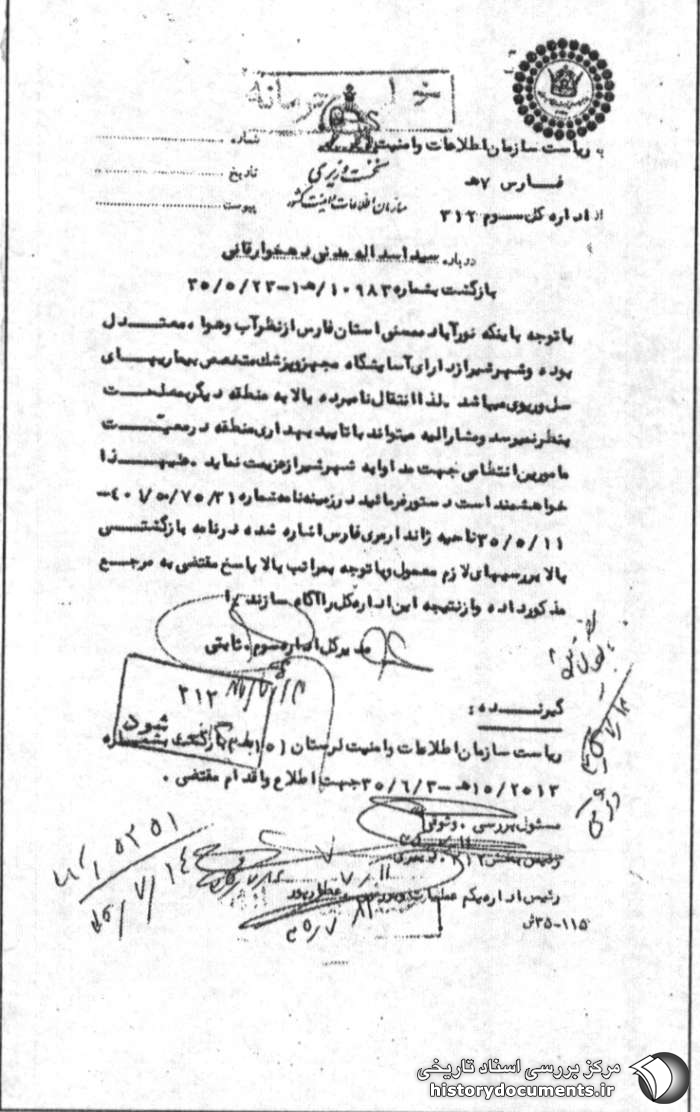 خیلی محرمانه
به ریاست سازمان اطلاعات و امنیت
فارس ه‍ ۷
از اداره کل سوم ۳۱۲
نخست وزیری
سازمان اطلاعات و امنیت کشور
شماره
تاریخ
پیوست
درباره سید اسداله مدنی دهخوارقانی
بازگشت بشماره ۱۰۹۸۳/ه‍ ۱-۳۵/۵/۲۳
با توجه باینکه نورآباد ممسنی استان فارس از نظر آب و هوا، معتدل
بوده و شهر شیراز دارای آسایشگاه مجهز و پزشک متخصص بیماریهای
سل و ریوی میباشد. لذا انتقال نامبرده بالا به منطقه دیگر مصلحت
بنظر نمیرسد و مشارالیه میتواند با تایید بهداری منطقه در معیت
مامورین انتظامی جهت مداوا به شهر شیراز عزیمت نماید. علیهذا
خواهشمند است دستور فرمائید در زمینه نامه شماره ۴۰۱/۵۰/۷۵/۳۱-
۳۵/۵/۱۱ ناحیه ژاندارمری فارس اشاره شده در نامه بازگشتی
بالا بررسیهای لازم معمول و با توجه بمراتب بالا پاسخ مقتضی به مرجع
مذکور داده و از نتیجه این اداره کل را آگاه سازند.
مدیر کل اداره سوم. ثابتی
۳۱۲
شود
گیرنده:
ریاست سازمان اطلاعات و امنیت لرستان بازگشت بشماره
۱۵/۲۰۱۳ه‍ -۳۵/۶/۳ جهت اطلاع و اقدام مقتضی.
مسئول بررسی. وثوقی
رئیس بخش ۳۱۲.
رئیس اداره یکم عملیات و بررسی. عطارپور
۳۵-۱۱۵ش
۳۱۲/۵۳۵۱
۳۵/۷/۱۴
مرکز بررسی اسناد تاریخی
historydocuments.ir